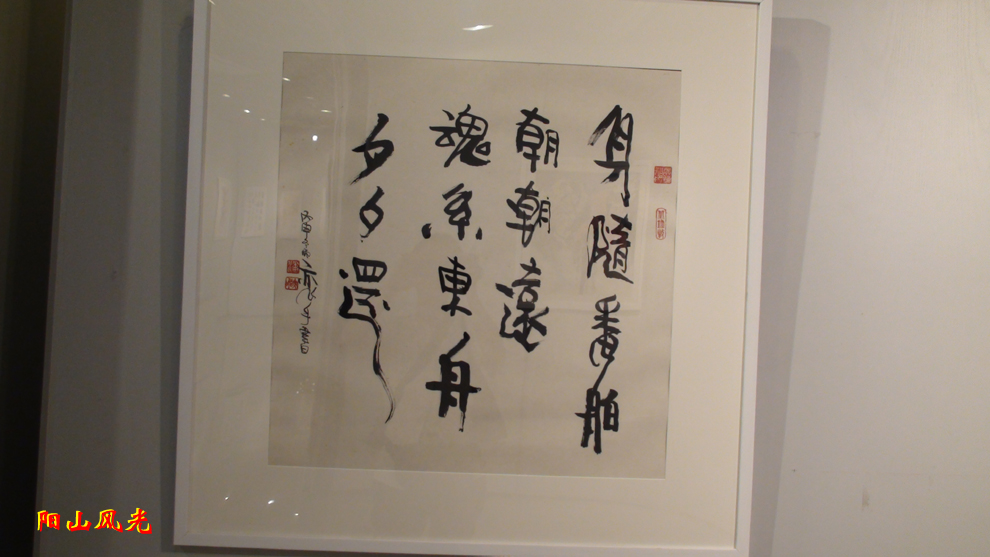 身隨番舶
朝朝遠
魂系東舟
夕夕還
阳山风光